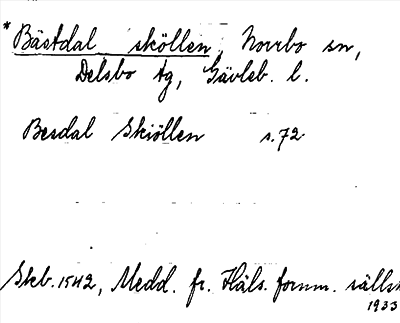 * Bästdal sköllen, Norrbo sn,
Delsbo tg, Gävleb. l.
Besdal Skiöllen s. 72
Skb. 1542, Medd. fr. Häls. fornm. sällsk
1933